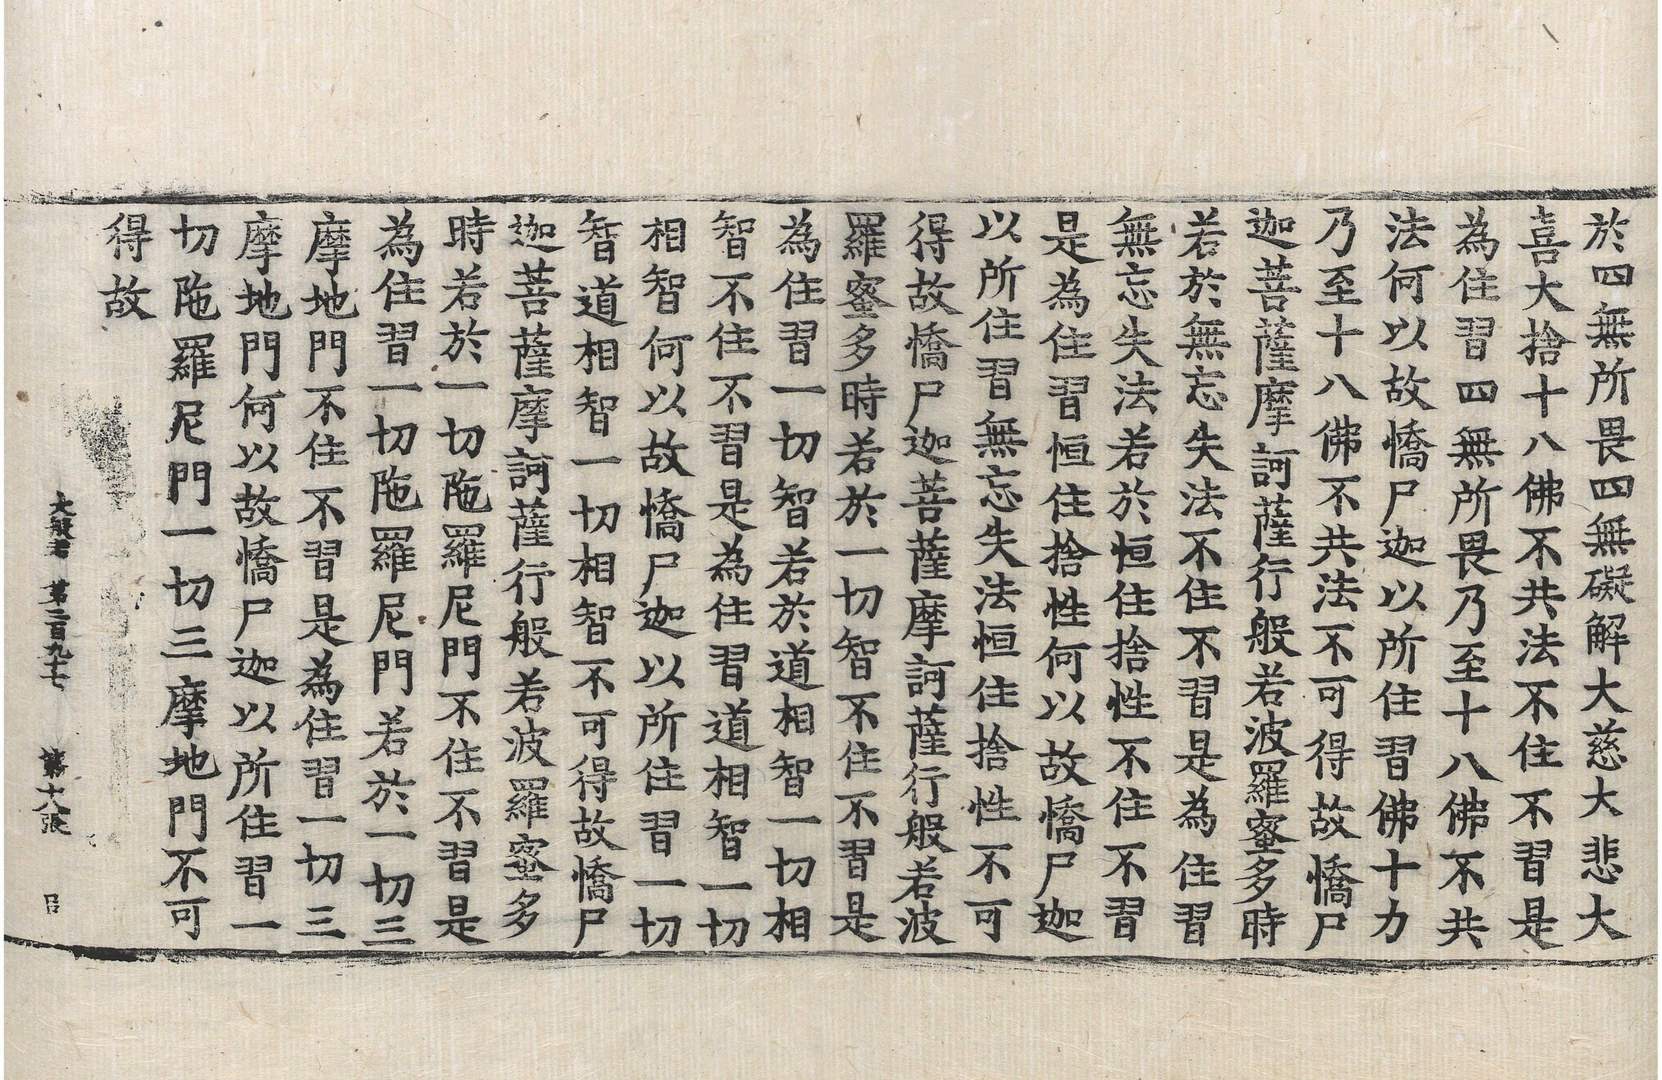 於四無所畏四無礙解大慈大悲大
喜大捨十八佛不共法不住不習是
為住習四無所畏乃至十八佛不共
法何以故憍尸迦以所住習佛十力
乃至十八佛不共法不可得故憍尸
迦菩薩摩訶薩行般若波羅蜜多時
若於無忘失法不住不習是為住習
無忘失法若於恒住捨性不住不習
是為住習恒住捨性何以故憍尸迦
以所住習無忘失法恒住捨性不可
得故憍尸迦菩薩摩訶薩行般若波
羅蜜多時若於一切智不住不習是
為住習一切智若於道相智一切相
智不住不習是為住習道相智一切
相智何以故憍尸迦以所住習一切
智道相智一切相智不可得故憍尸
迦菩薩摩訶薩行般若波羅蜜多
時若於一切陁羅尼門不住不習是
為住習一切陁羅尼門若於一切三
摩地門不住不習是為住習一切三
摩地門何以故憍尸迦以所住習一
切陁羅尼門一切三摩地門不可
得故
大般若 第二百九十七 第十八張